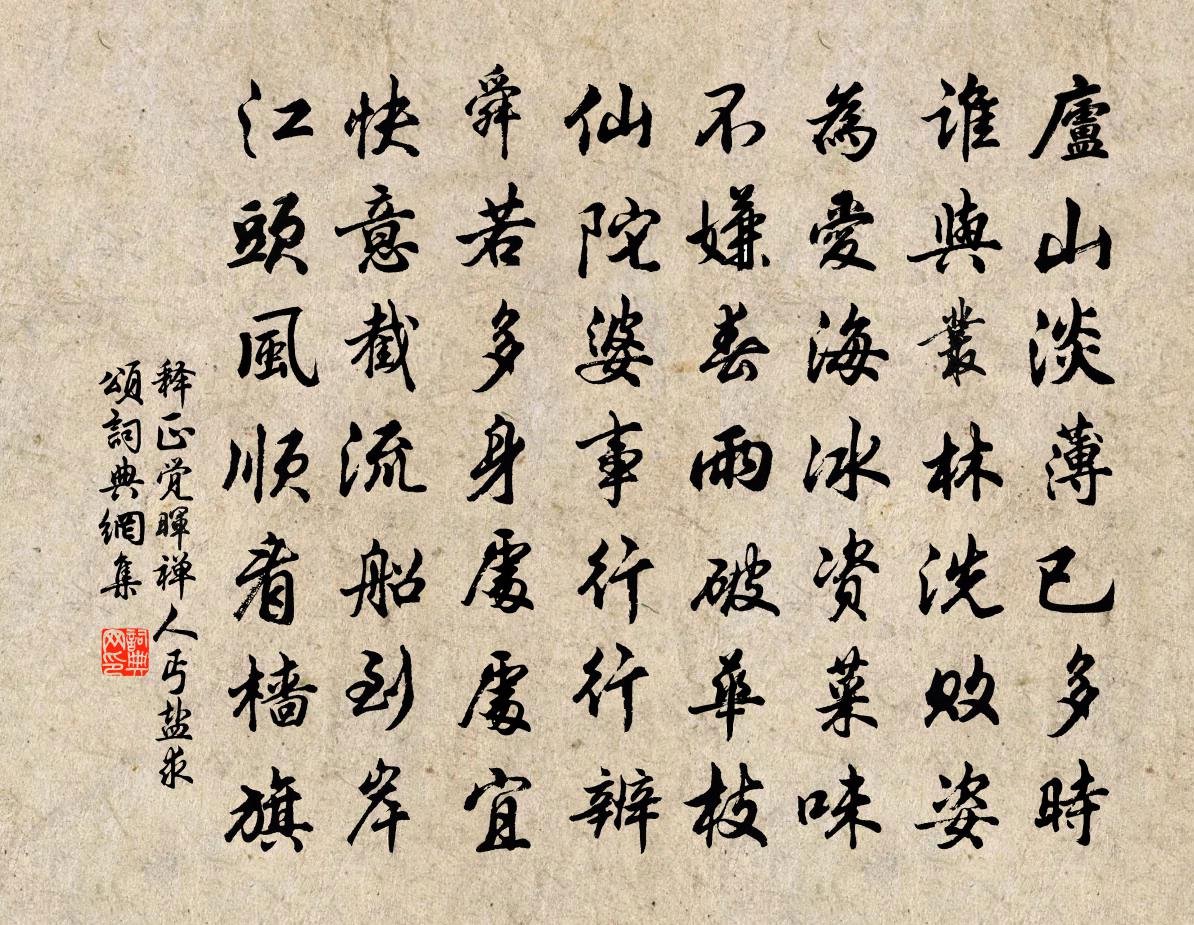 廬山淡薄已多時
誰與叢林洗敗姿
為愛海冰資菜味
不嫌春雨破華枝
仙陀婆事行行辦
舜若多身處處宜
快意截流船到岸
江頭風順看檣旗
释正觉暉禅人丐盐求
頌詞典網集
詞典网印